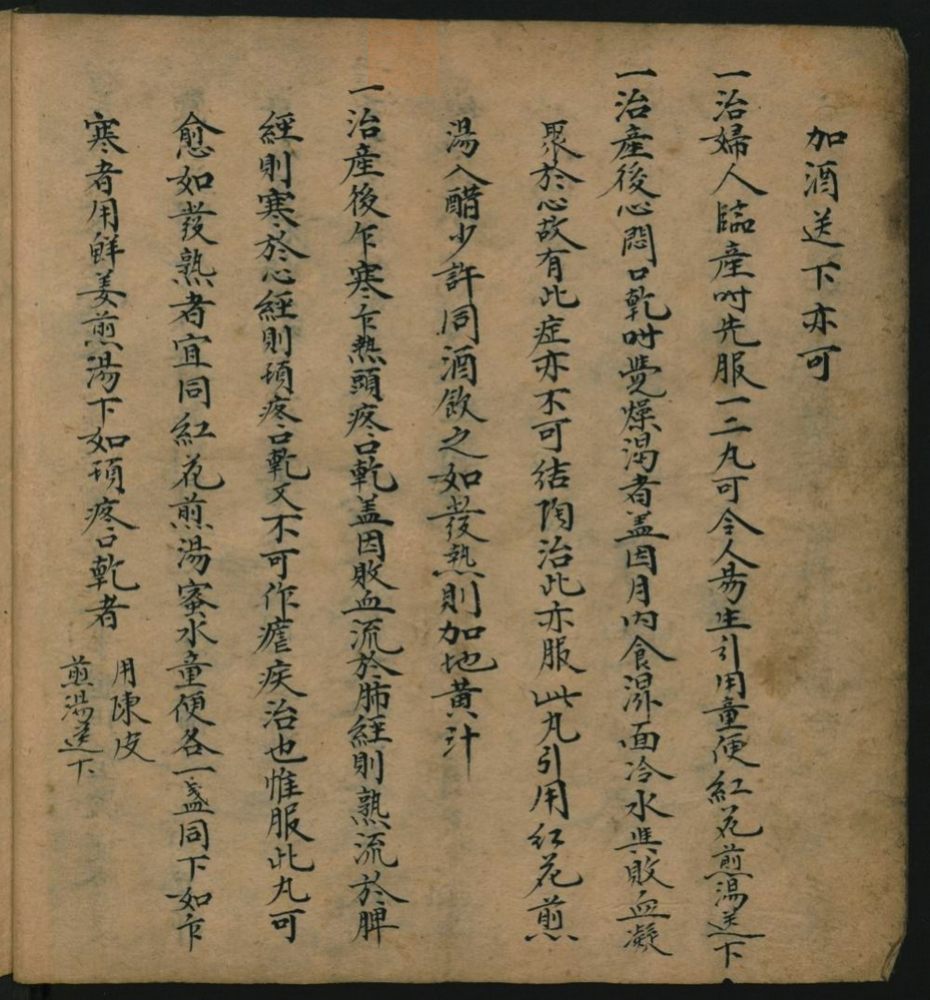 加酒送下亦可
一治婦人臨產时先服一二丸可令人易生引用童便紅花煎湯送下
一治產後心悶口乾时覺燥渴者盖因月内食濕面冷水與敗血凝
聚於心故有此症亦不可结陶治此亦服此丸引用红花煎
湯入醋少許同酒飲之如發熱則加地黃汁
一治產後乍寒乍熱頭疼口乾盖因敗血流於肺經則熱流於脾
經則寒於心經則頭疼口乾又不可作瘧疾治也惟服此丸可
愈如發熱者宜同紅花煎湯蜜水童便各一盞同下如乍
寒者用鮮姜煎湯下如頭疼口乾者
用陳皮
煎湯送下